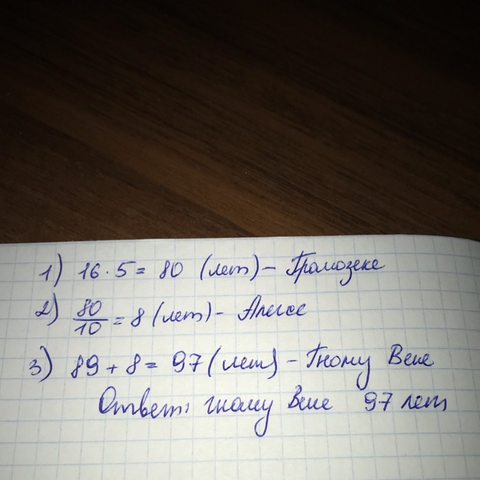 1) 16 · 5 = 80 (лет) – Громозеке
2) 80/10 = 8 (лет) – Алисе
3) 89 + 8 = 97 (лет) – Гному Вене
Ответ: гному Вене 97 лет